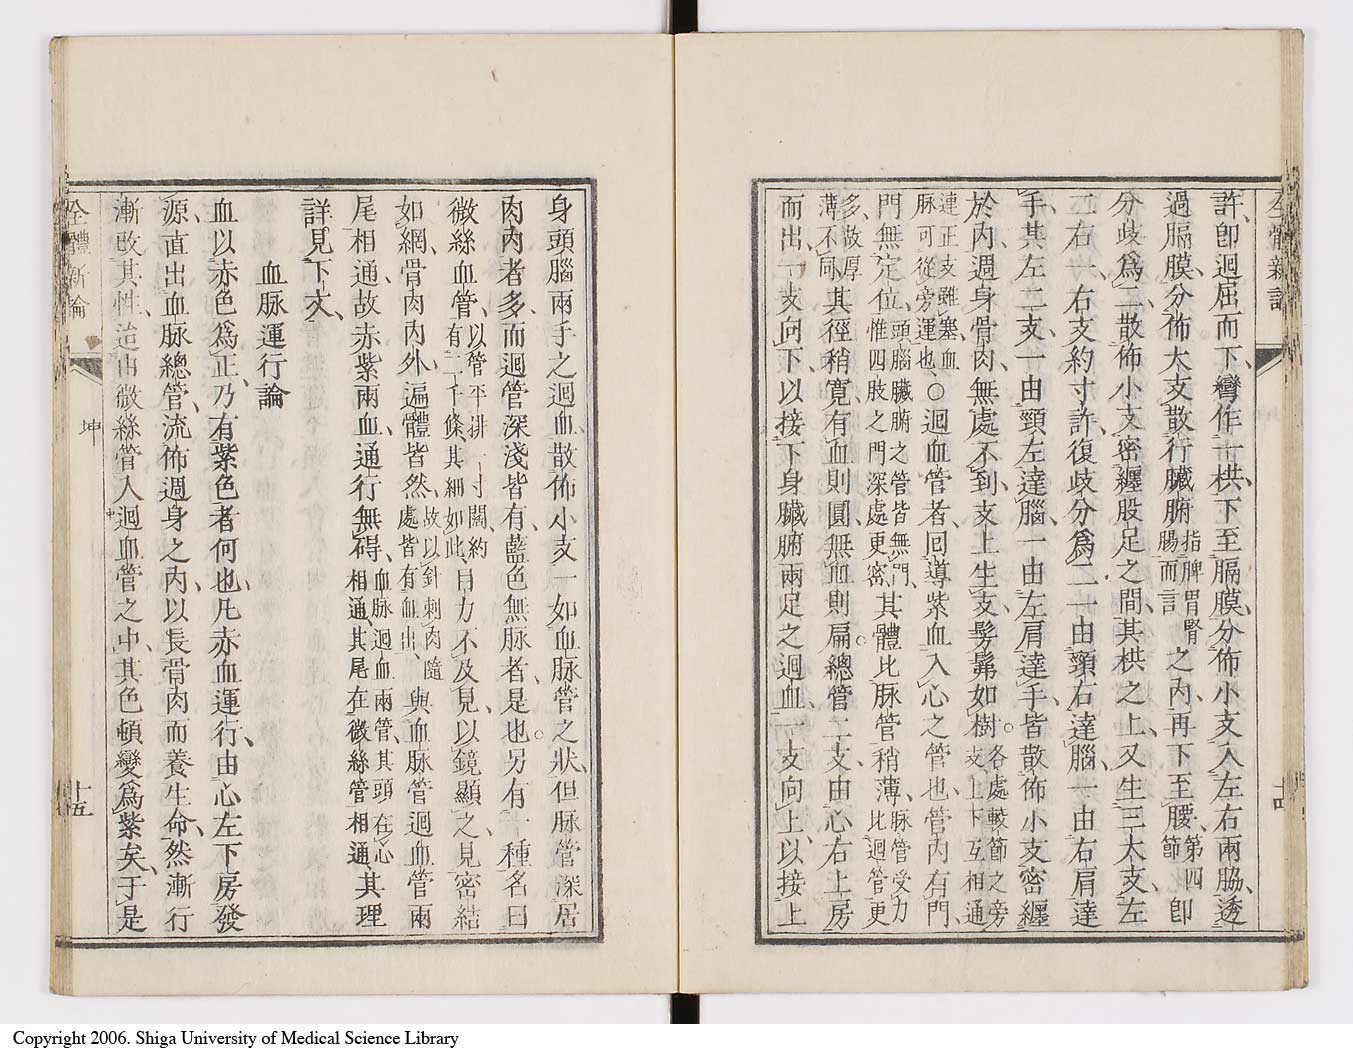 全體新論
許、卽迴屈而下、彎作一栱、下至膈膜、分佈小支、入左右兩脇、透
過膈膜、分佈大支、散行臟腑指脾胃腎腸而言之內、再下至腰、第四節卽
分歧爲二、散佈小支、密纏股足之間、其栱之上、又生三大支、左
二右一、右支約寸許、復歧分爲二、一由頸右達腦、一由右肩達
手、其左二支、一由頸左達腦、一由左肩達手、皆散佈小支、密纏
於內、週身骨肉、無處不到、支上生支、髣髴如樹。各處骸節之旁支、上下互相通
連、正支雖塞、血脈可從旁運也、〇迴血管者、回導紫血入心之管也、管內有門、
門無定位、頭腦臟腑之管皆無門、惟四肢之門深處更密、其體比脈管稍薄、脈管受力多、故厚薄不同、比迴管更
其徑稍寬、有血則圓、無血則扁。總管二支、由心右上房
而出、一支向下、以接下身臟腑兩足之迴血、一支向上、以接上
十四
身頭腦兩手之迴血、散佈小支、一如血脈管之狀、但脈管深居
肉內者多、而迴管深淺皆有、藍色無脈者是也。另有一種、名曰
微絲血管、以管平排一寸闊、約有二千條、其細如此、目力不及見、以鏡顯之、見密結
如網、骨肉內外、遍體皆然、故以針刺肉、隨處皆有血出、與血脈管迴血管兩
尾相通、故赤紫兩血、通行無碍、血脈迴血兩管、其頭在心相通、其尾在微絲管相通、其理
詳見下文、
血脈運行論
血以赤色爲正、乃有紫色者何也、凡赤血運行、由心左下房發
源、直出血脈總管、流佈週身之內、以長骨肉而養生命、然漸行
漸改其性、迨由微絲管入迴血管之中、其色頓變爲紫矣、于是
全體新論
坤
十五